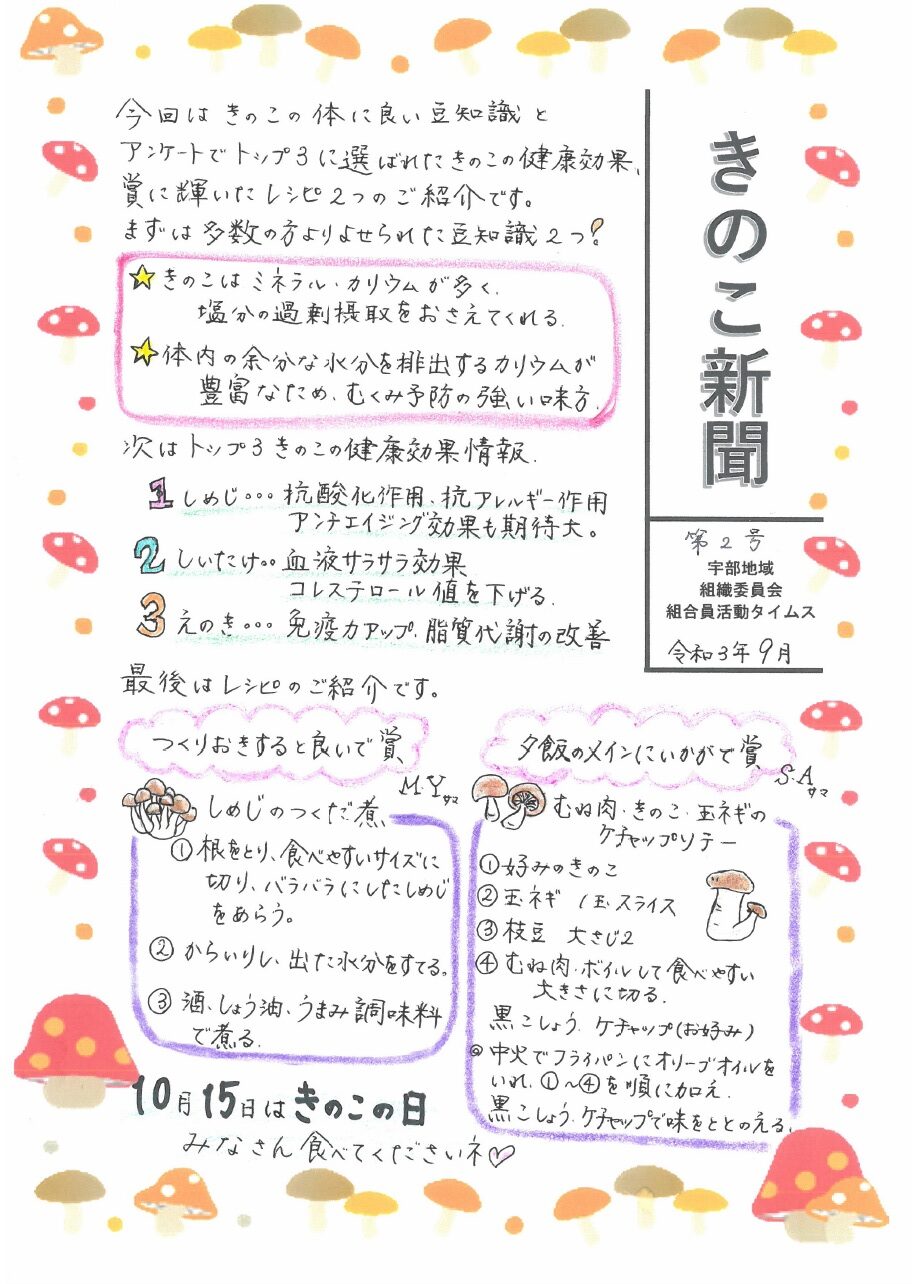 きのこ新聞
第2号
宇部地域
組織委員会
組合員活動タイムス
令和3年9月
今回はきのこの体に良い豆知識と
アンケートでトップ3に選ばれたきのこの健康効果、
賞に輝いたレシピ2つのご紹介です。
まずは多数の方よりよせられた豆知識2つ!
きのこはミネラル・カリウムが多く、
塩分の過剰摂取をおさえてくれる.
体内の余分な水分を排出するカリウムが
豊富なため、むくみ予防の強い味方.
次はトップ3きのこの健康効果情報.
1 しめじ・・・抗酸化作用、抗アレルギー作用
アンチエイジング効果も期待大。
2 しいたけ・・血液サラサラ効果
コレステロール値を下げる.
3 えのき・・・免疫力アップ、脂質代謝の改善
最後はレシピのご紹介です。
つくりおきすると良いで賞
M.Yサマ
しめじのつくだ煮
①根をとり、食べやすいサイズに
切り、バラバラにしたしめじ
をあらう。
②からいりし、出た水分をすてる。
③酒、しょう油、うまみ調味料
で煮る.
夕飯のメインにいかがで賞
S.Aサマ
むね肉・きのこ・玉ネギの
ケチャップソテー
①好みのきのこ
②玉ネギ 1玉スライス
③枝豆 大さじ2
④むね肉・ボイルして食べやすい
大きさに切る.
黒こしょう、ケチャップ(お好み)
◎中火でフライパンにオリーブオイルを
いれ、①〜④を順に加え.
黒こしょう、ケチャップで味をととのえる.
10月15日はきのこの日
みなさん食べてくださいネ♡